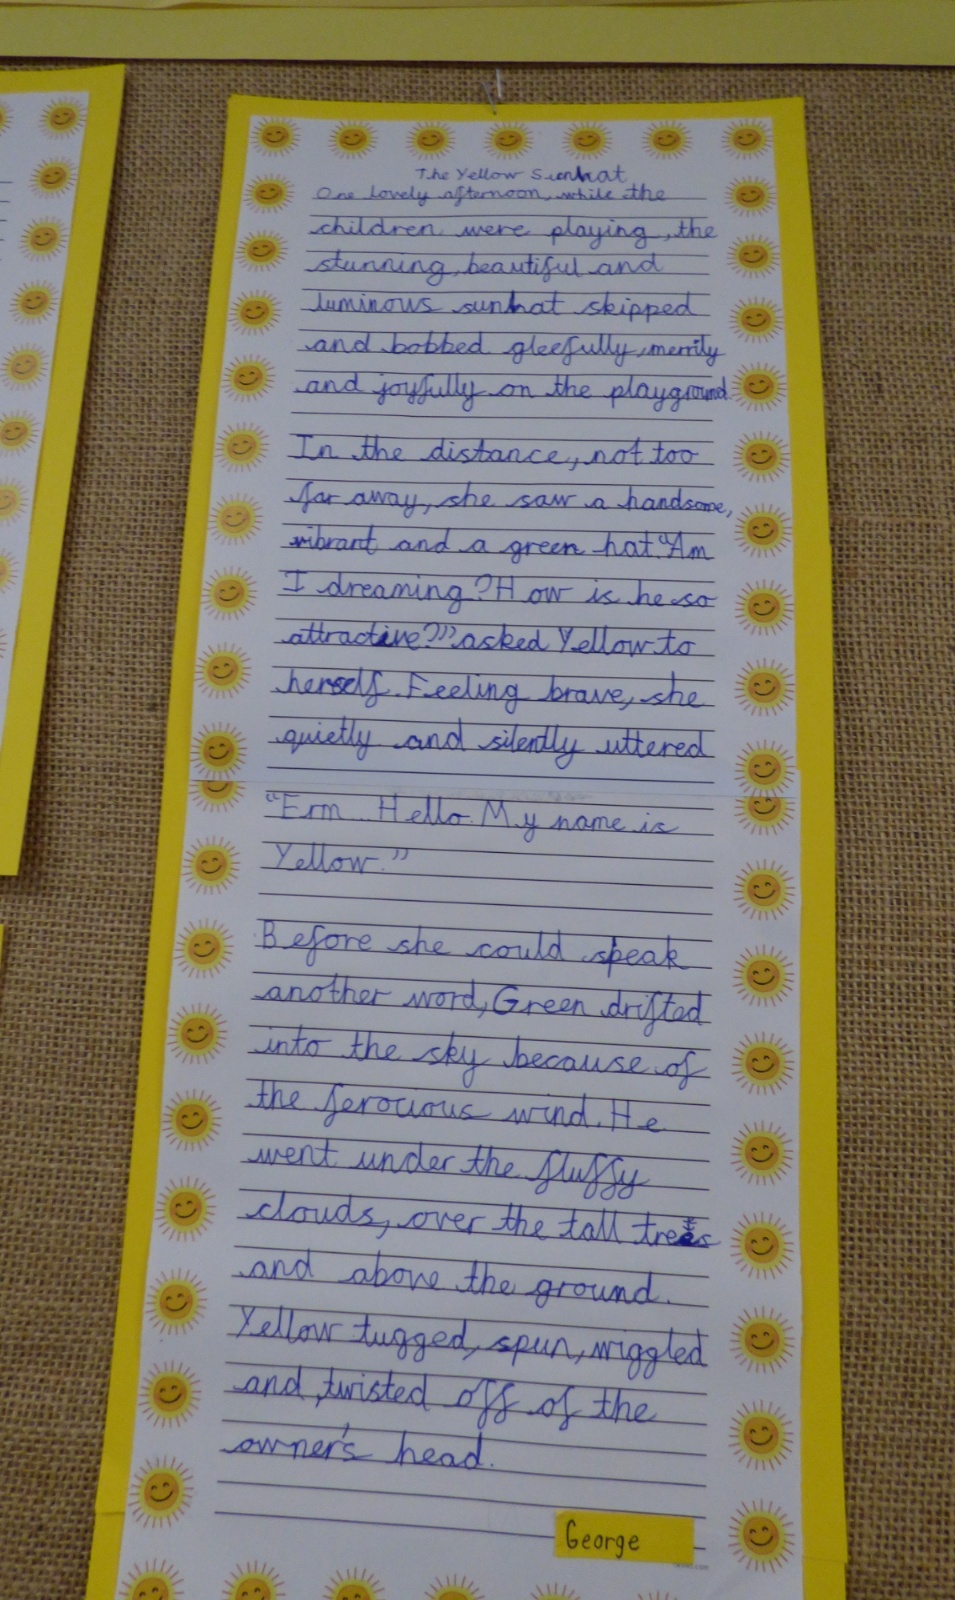 The Yellow Sunhat
One lovely afternoon, while the
children were playing, the
stunning, beautiful and
luminous sunhat skipped
and bobbed gleefully, merrily
and joyfully on the playground.
In the distance, not too
far away, she saw a handsome,
vibrant and a green hat. "Am
I dreaming? How is he so
attractive?" asked Yellow to
herself. Feeling brave, she
quietly and silently uttered
"Erm... Hello. My name is
Yellow."
Before she could speak
another word, Green drifted
into the sky because of
the ferocious wind. He
went under the fluffy
clouds, over the tall trees
and above the ground.
Yellow tugged, spun, wiggled
and twisted off of the
owner's head.
George